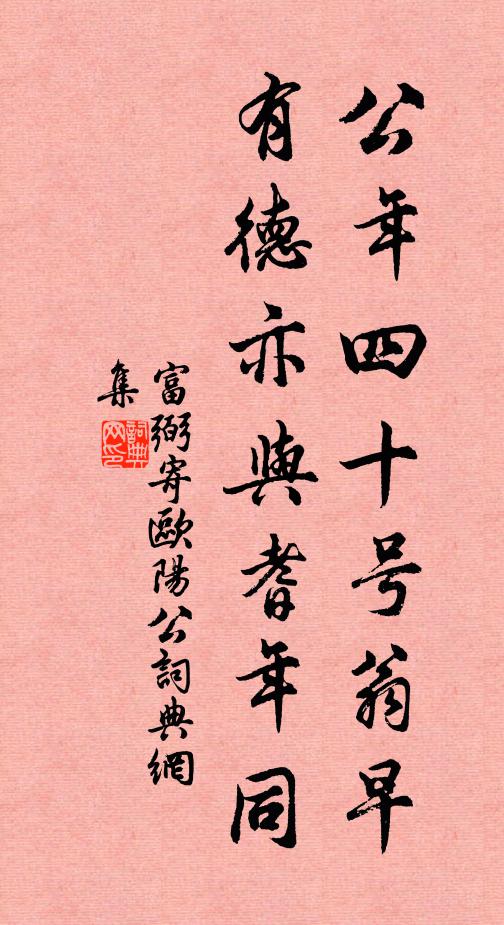 公年四十号翁早
有德亦與耆年同
富弼寄歐陽公詞典網
集
詞典
网印